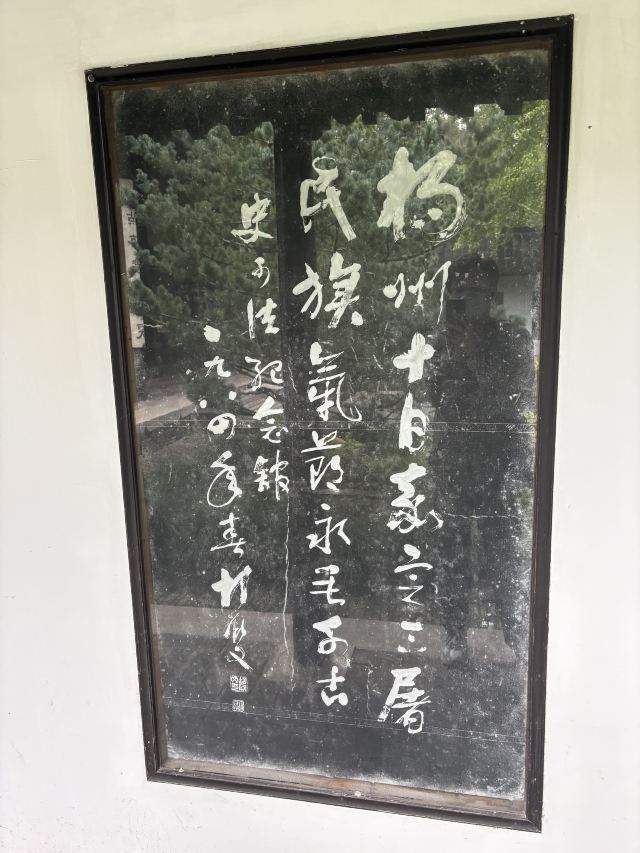 揚州十日嘉定三屠
民族氣節永垂千古
史可法纪念館
一九八四年春